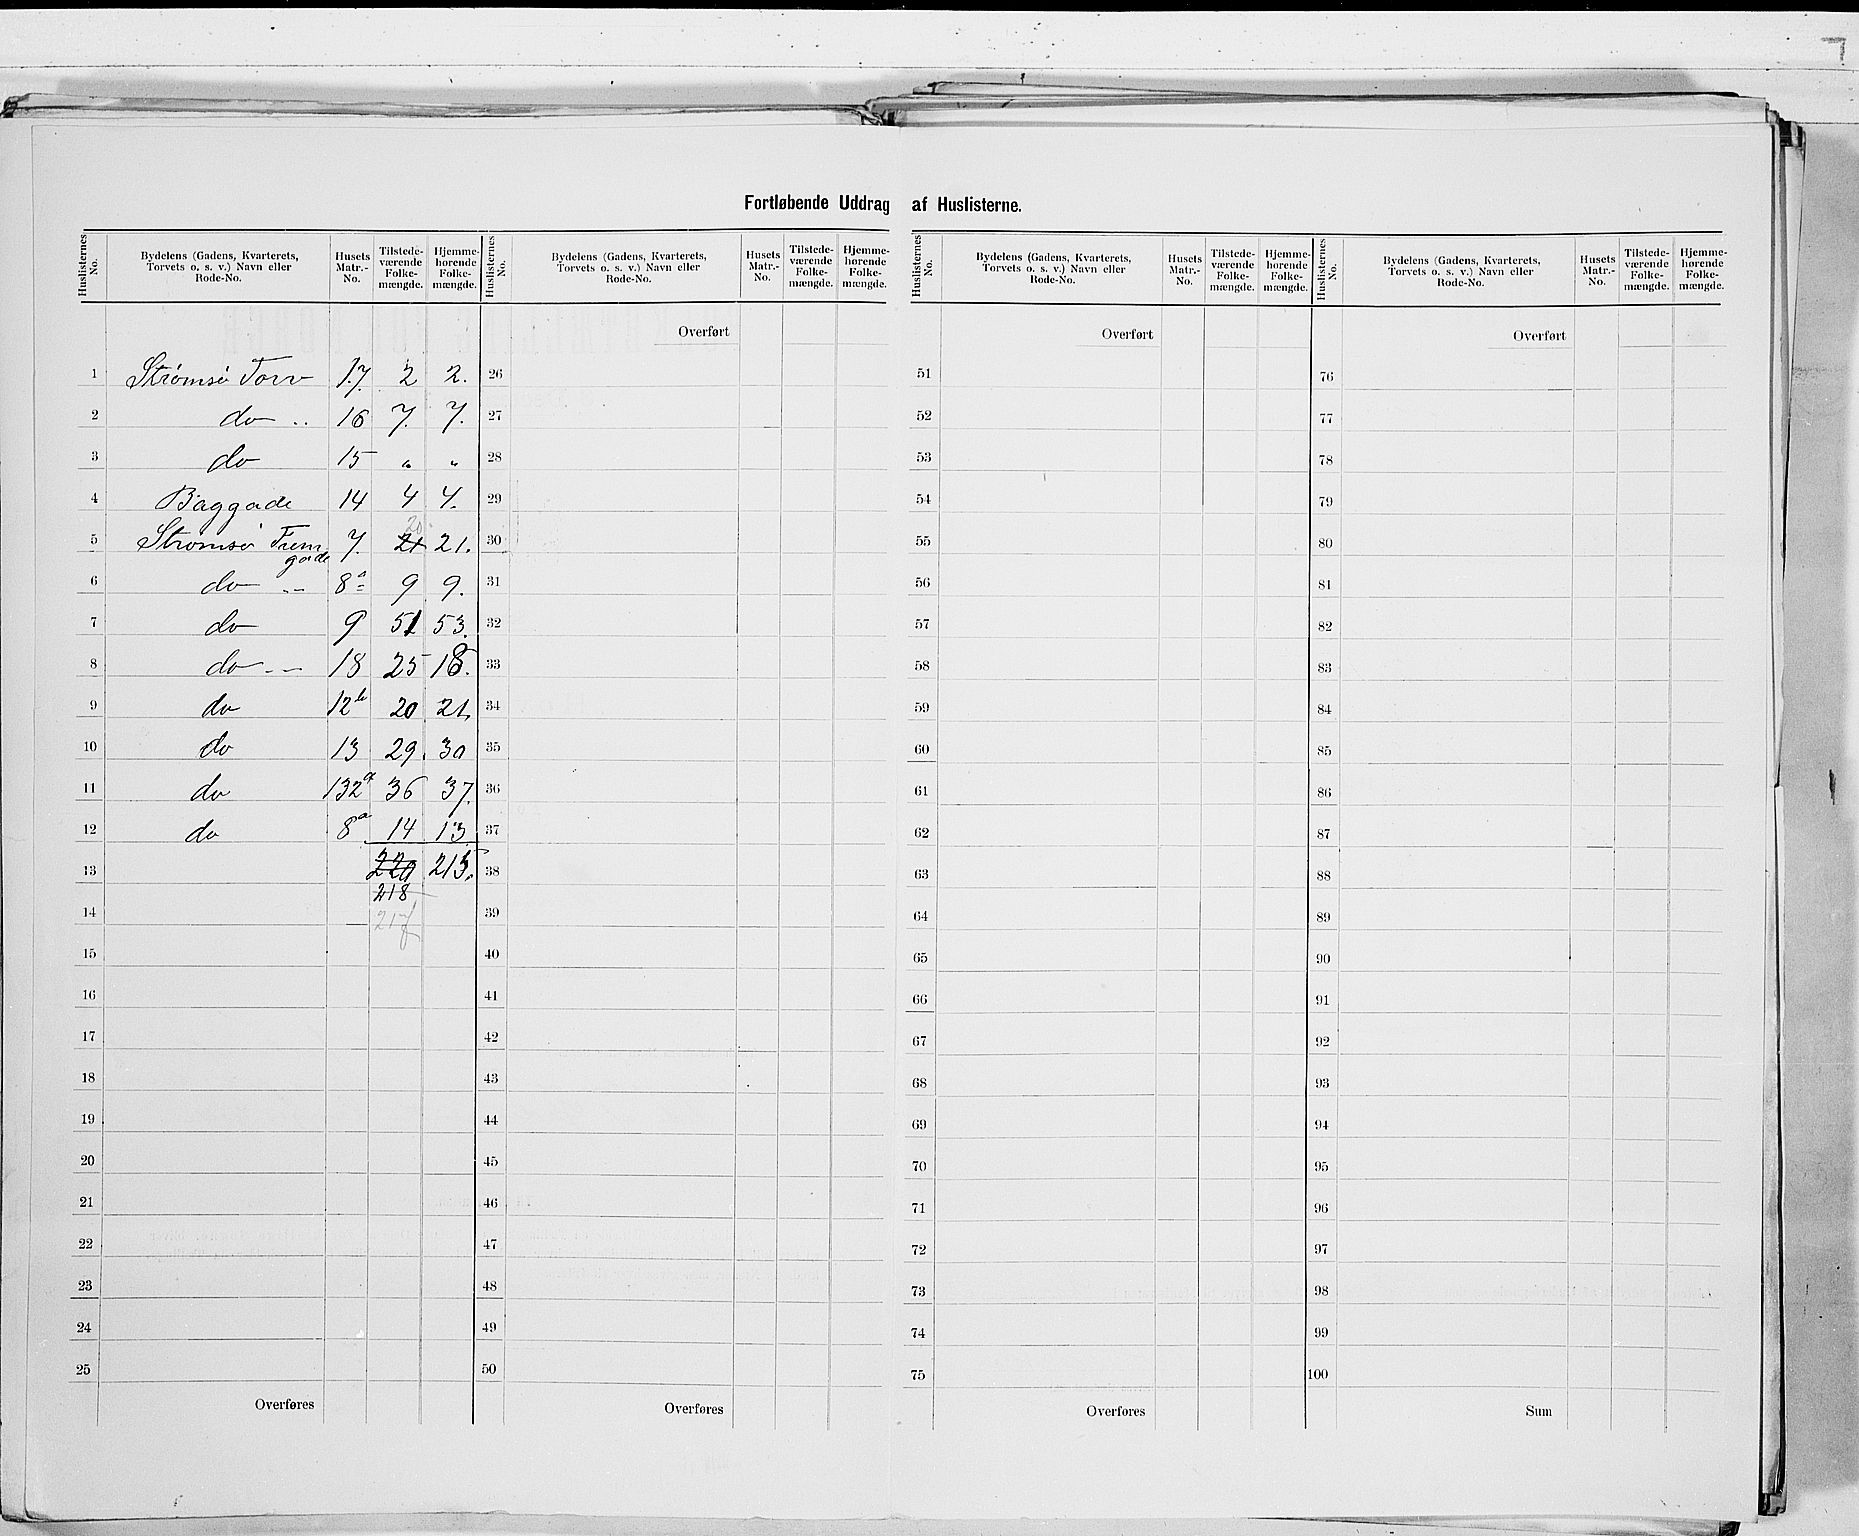 Fortløbende Uddrag af Huslisterne.
Huslisternes No. | Bydelens (Gadens, Kvarterets, Torvets o. s. v.) Navn eller Rode-No. | Husets Matr.-No. | Tilstedeværende Folkemængde. | Hjemmehørende Folkemængde.
1 Strømsø Torv 17. 2 2.
2 do 16 7. 7.
3 do 15 " "
4 Baggade 14 4 4.
20
5 Strømsø Frem 7. 21 21.
gade
6 do 8a 9 9.
7 do 9 51 53.
8 do 18 25 18.
9 do 12b 20 21.
10 do 13 29. 30
11 do 132a 36 37.
12 do 8a 14 13
13 220 215.
218
14 217
15
16
17
18
19
20
21
22
23
24
25
Overføres
Huslisternes No. | Bydelens (Gadens, Kvarterets, Torvets o. s. v.) Navn eller Rode-No. | Husets Matr.-No. | Tilstedeværende Folkemængde. | Hjemmehørende Folkemængde.
Overført
26
27
28
29
30
31
32
33
34
35
36
37
38
39
40
41
42
43
44
45
46
47
48
49
50
Overføres
Huslisternes No. | Bydelens (Gadens, Kvarterets, Torvets o. s. v.) Navn eller Rode-No. | Husets Matr.-No. | Tilstedeværende Folkemængde. | Hjemmehørende Folkemængde.
Overført
51
52
53
54
55
56
57
58
59
60
61
62
63
64
65
66
67
68
69
70
71
72
73
74
75
Overføres
Huslisternes No. | Bydelens (Gadens, Kvarterets, Torvets o. s. v.) Navn eller Rode-No. | Husets Matr.-No. | Tilstedeværende Folkemængde. | Hjemmehørende Folkemængde.
Overført
76
77
78
79
80
81
82
83
84
85
86
87
88
89
90
91
92
93
94
95
96
97
98
99
100
Sum